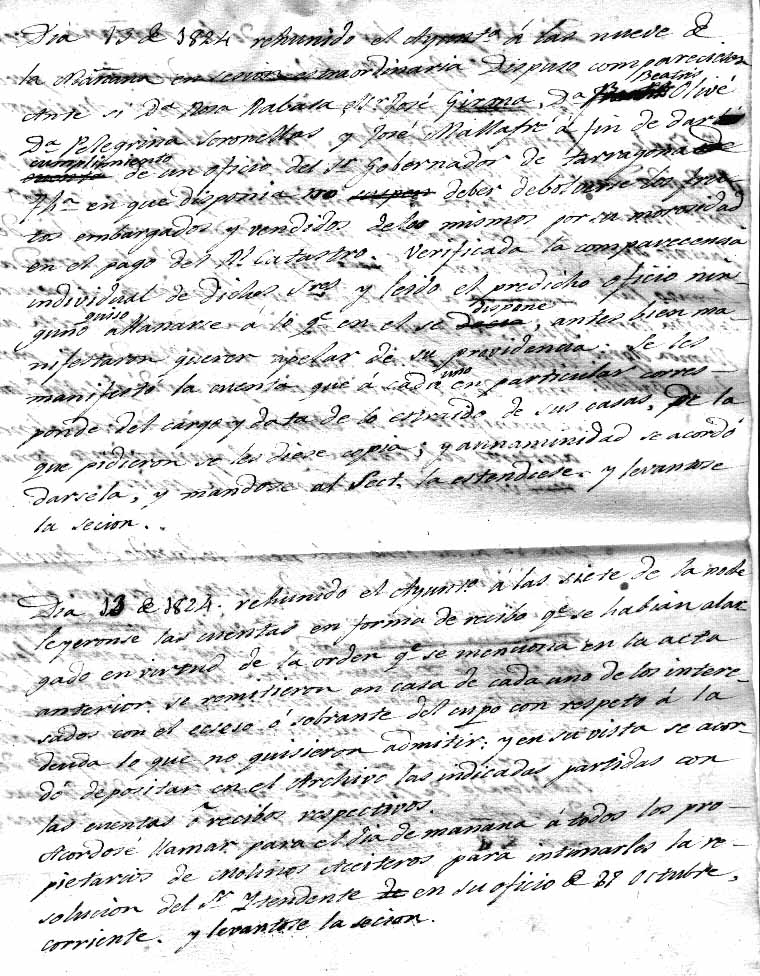 Dia 13 de 1824 rehunido el Ayunta á las nueve de
la Mañana en secion estraordinaria Dispuso comparecieran
Ante si Da Rosa Rabasa, Mn José Girma, Da Beatris Olivé
Da Pelegrina Soronellas y José Mallafré á fin de dar
cumplimiento de un oficio del Sr Gobernador de Tarragona
fha en que disponia no deber debolverse los fru-
tos embargados y vendidos de los mismos por su morosidad
en el pago del Rl Catastro. Verificada la comparecencia
individual de Dichos Sres y leido el predicho oficio nin-
guno quiso allanarse á lo qe en el se dispone, antes bien ma-
nifestaron querer apelar de su providencia. Se les
manifestó la cuenta que á cada uno en particular corres-
ponde del cárgo y data de lo estraido de sus casas, De la
que pidieron se les diese copia; y a unanimidad se acordó
darsela, y mandose al Sect. la estendiese. y levantose
la secion.
Dia 13 de 1824. rehunido el Ayunto á las siete de la noche
leyeronse las cuentas en forma de recibo qe se habian alar-
gado en virtud de la orden qe se menciona en la acta
anterior. se remitieron en casa de cada uno de los intere-
sados con el ecseso ó sobrante del cupo con respeto á la
deuda lo que no quisieron admitir; y en su vista se acor-
dó depositar en el Archivo las indicadas partidas con
las cuentas ó recibos respectivos.
Acordosé llamar para el dia de mañana á todos los pro-
pietarios de Molinos Aceiteros para intimarles la re-
solucion del Sr Yntendente en su oficio de 27 Octubre,
corriente. y levantose la secion.